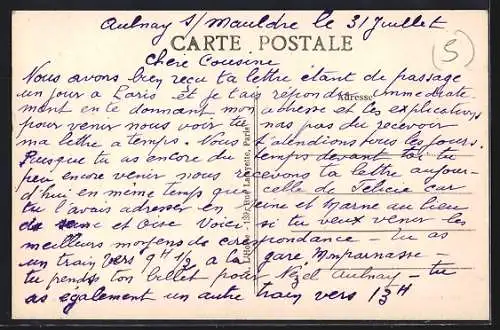 Aulnay s/ Mauldre le 31 Juillet
CARTE POSTALE
5
Chère Cousine
Nous avons bien reçu ta lettre étant de passage
un jour a Paris et je t'ais répondu immediate
Adresse
ment en te donnant mon adresse et les explications
pour venir nous voir tu nas pas du recevoir
ma lettre a temps. Nous t'attendions tous les jours.
Puisque tu as encore du temps devant toi tu
peu encore venir nous recevons ta lettre aujour-
d'hui en même temps que celle de Felicie car
tu l'avais adresser en Seine et Marne au lieu
de Seine et Oise Voici si tu veux venir les
meilleurs moyens de corespondance - Tu as
un train vers 9H 1/2 a la gare Monparnasse -
tu prends ton billet pour Nézel Aulnay - tu
as également un autre train vers 13H
Rue Lafayette, Paris